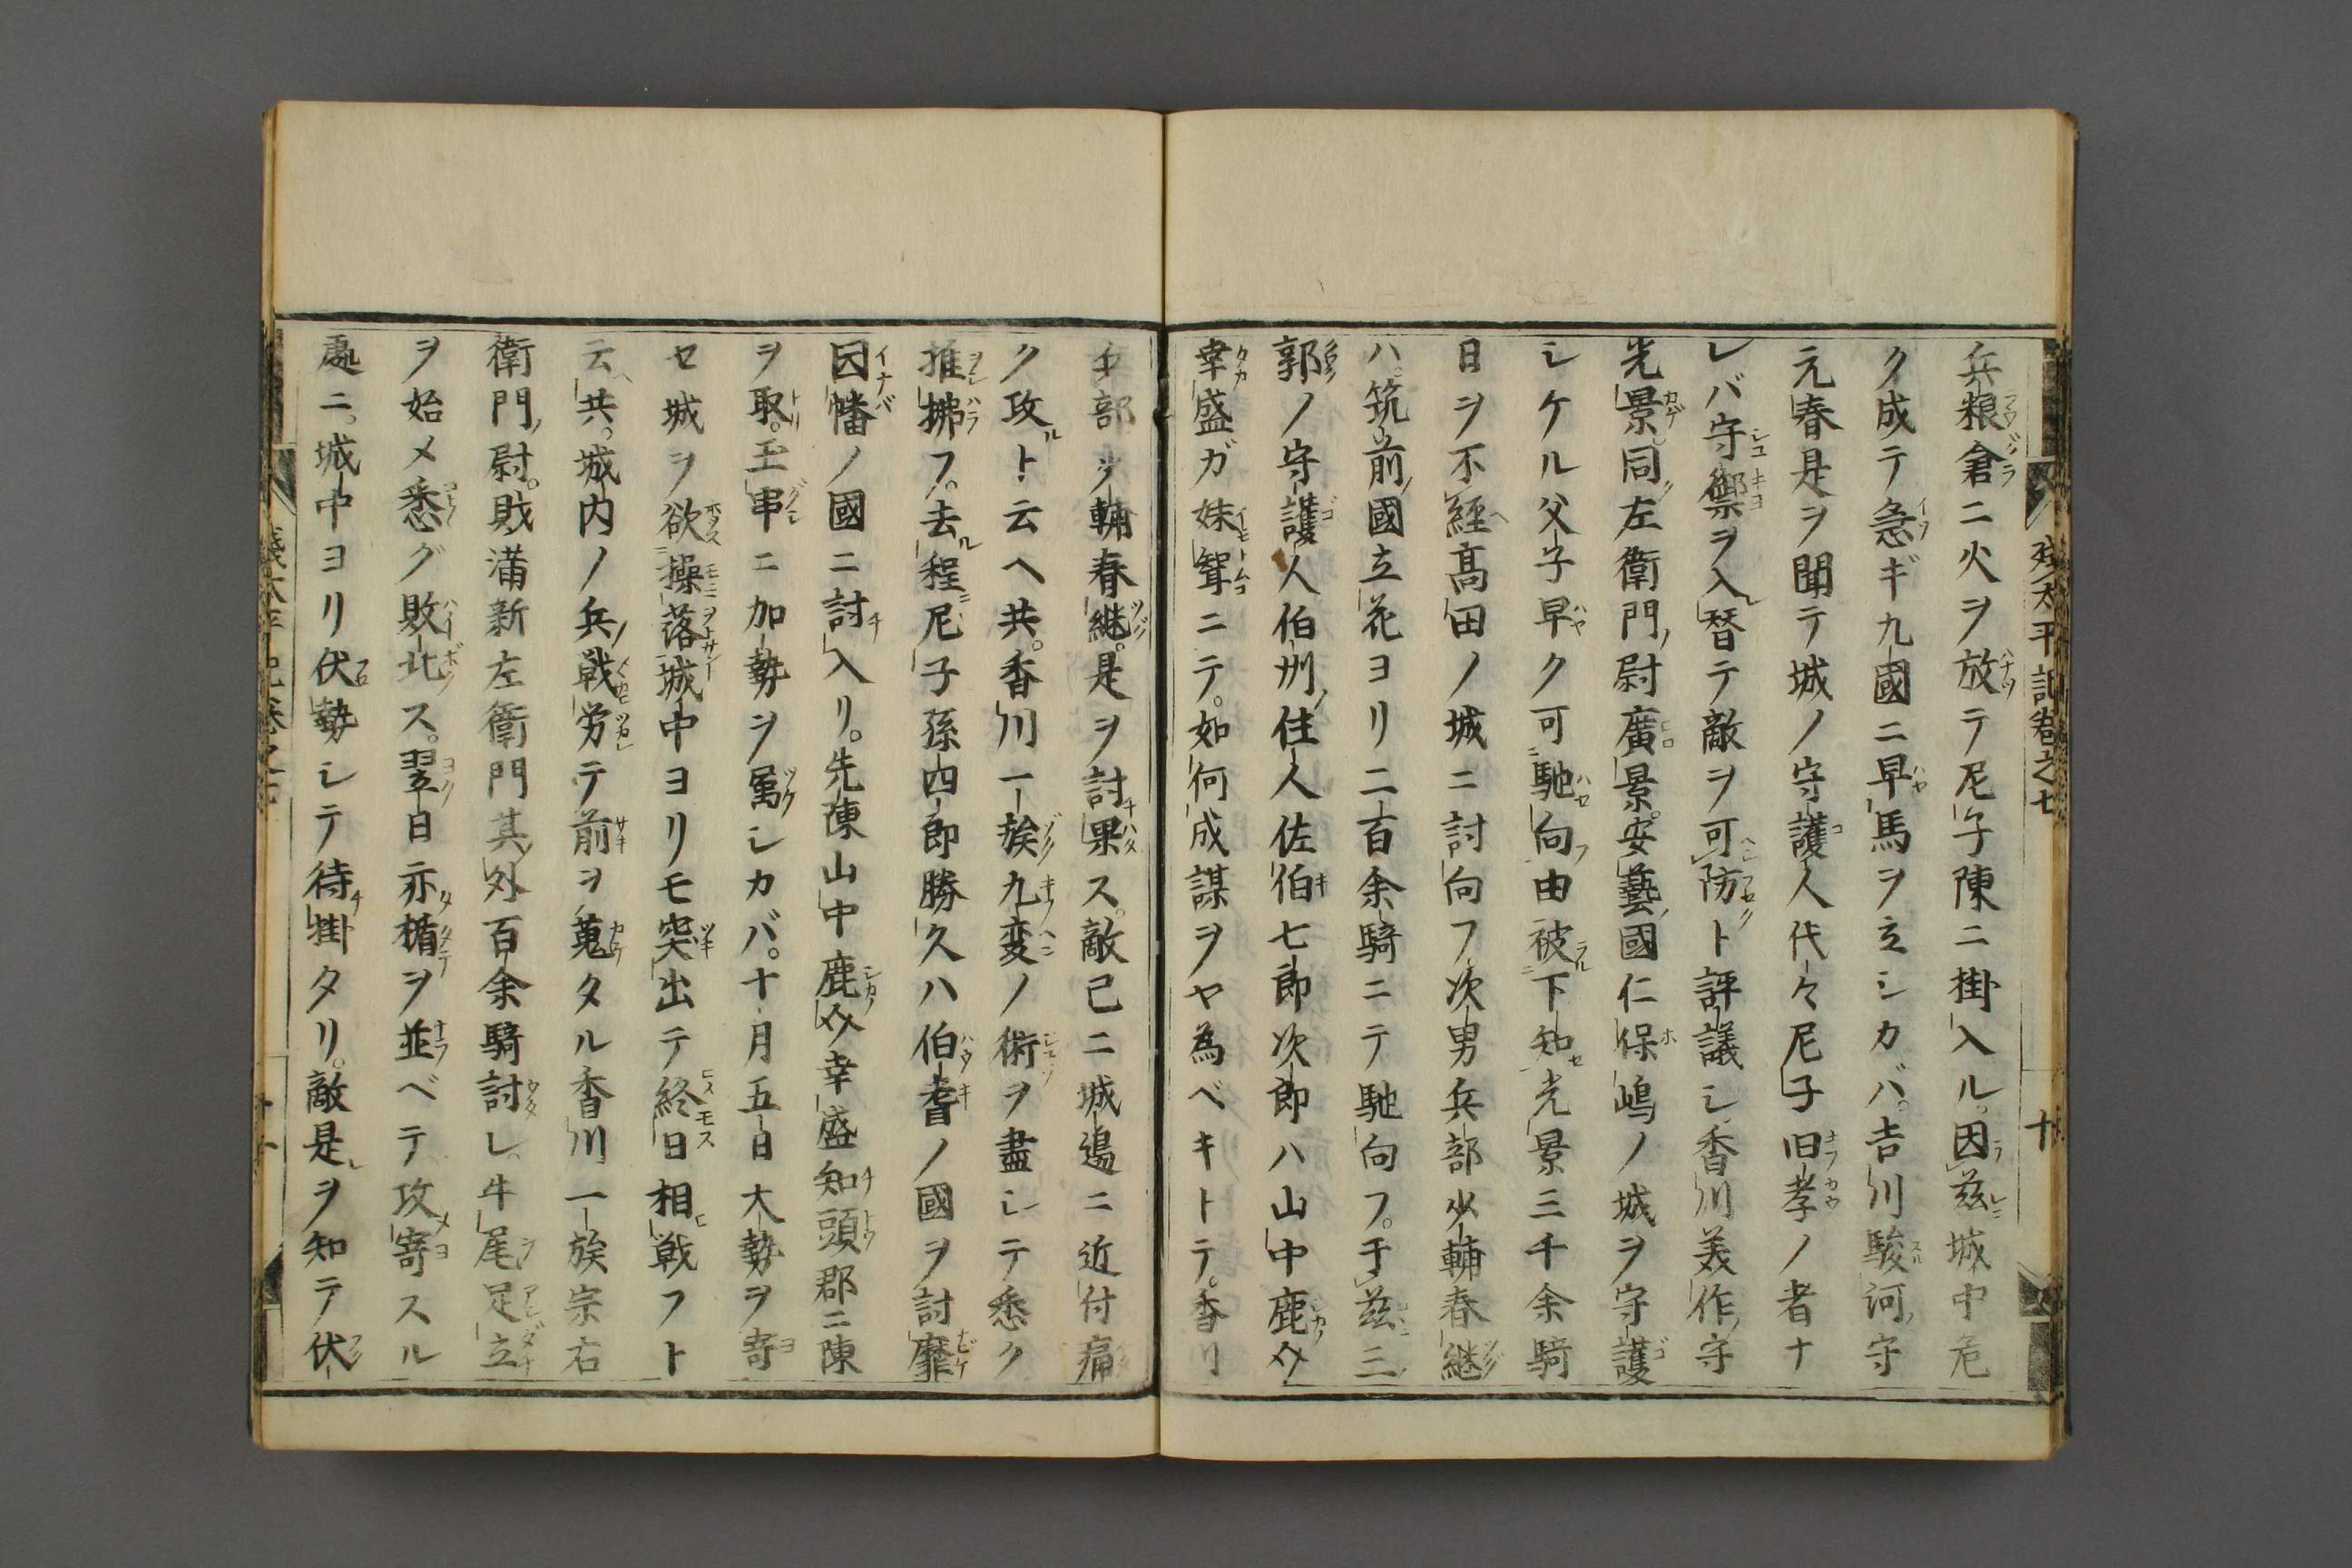 残太平記巻之七
十
兵粮倉ニ火ヲ放テ尼子陳ニ掛入ル。因茲城中危
ク成テ急ギ九國ニ早馬ヲ立シカバ。吉川駿河守
元春是ヲ聞テ城ノ守護人代々尼子旧孝ノ者ナ
レバ守禦ヲ入替テ敵ヲ可防ト評議シ香川美作守
光景同左衛門尉廣景。安藝國仁保嶋ノ城ヲ守護
シケル父子早ク可馳向由被下知光景三千余騎
日ヲ不經髙田ノ城ニ討向フ次男兵部少輔春継
ハ筑前國立花ヨリ二百余騎ニテ馳向フ。于茲三ノ
郭ノ守護人伯州住人佐伯七郎次郎ハ山中鹿介
幸盛ガ妹聟ニテ。如何成謀ヲヤ為ベキトテ。香川
兵部少輔春継。是ヲ討果ス。敵已ニ城邊ニ近付痛
ク攻ト云ヘ共。香川一族九変ノ術ヲ盡シテ悉ク
推拂フ。去程尼子孫四郎勝久ハ伯耆ノ國ヲ討靡
因幡ノ國ニ討入リ。先陳山中鹿介幸盛知頭郡ニ陳
ヲ取。玉串ニ加勢ヲ属シカバ。十月五日大勢ヲ寄
セ城ヲ欲操落城中ヨリモ突出テ終日相戦フト
云共。城内ノ兵戦労テ前ヲ蒐タル香川一族宗右
衛門尉。財満新左衛門其外百余騎討レ牛尾足立
ヲ始メ悉グ敗北ス。翌日亦楯ヲ並ベテ攻寄スル
處ニ。城中ヨリ伏勢シテ待掛タリ。敵是ヲ知テ伏